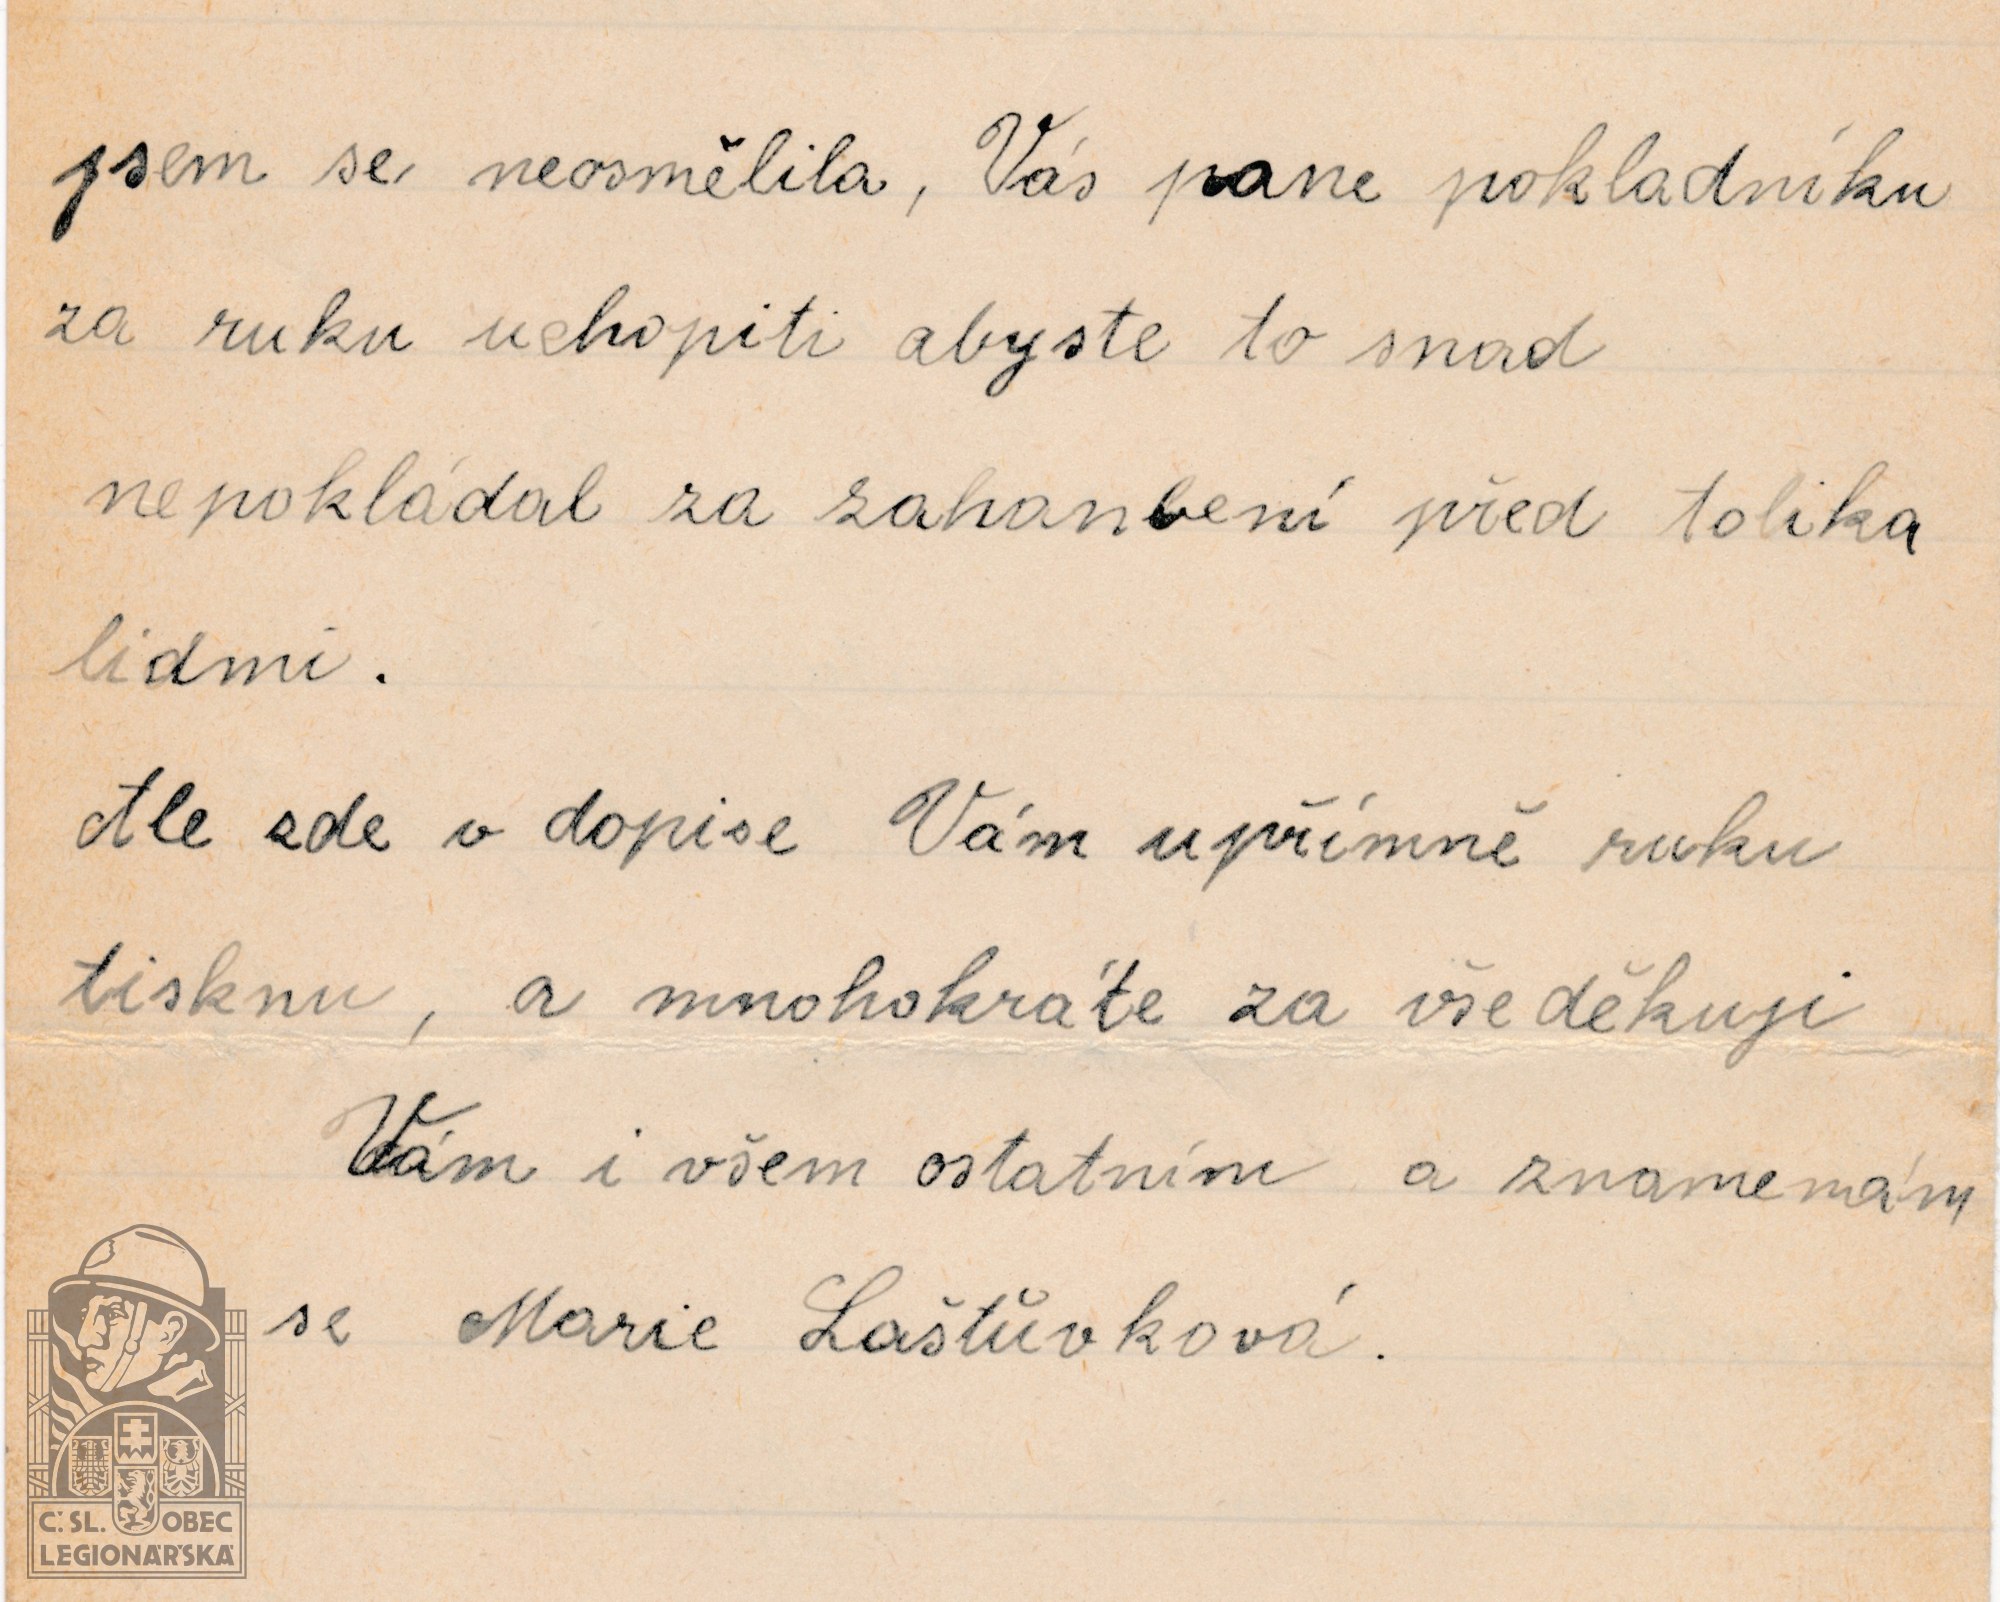 jsem se neosmělila, Vás pane pokladníku
za ruku uchopiti abyste to snad
nepokládal za zahanbení před tolika
lidmi.
Ale zde v dopise Vám upřímně ruku
tisknu, a mnohokráte za všeděkuji
Vám i všem ostatním a znamenám
se Marie Laštůvková.
Č. SL. OBEC
LEGIONÁŘSKÁ